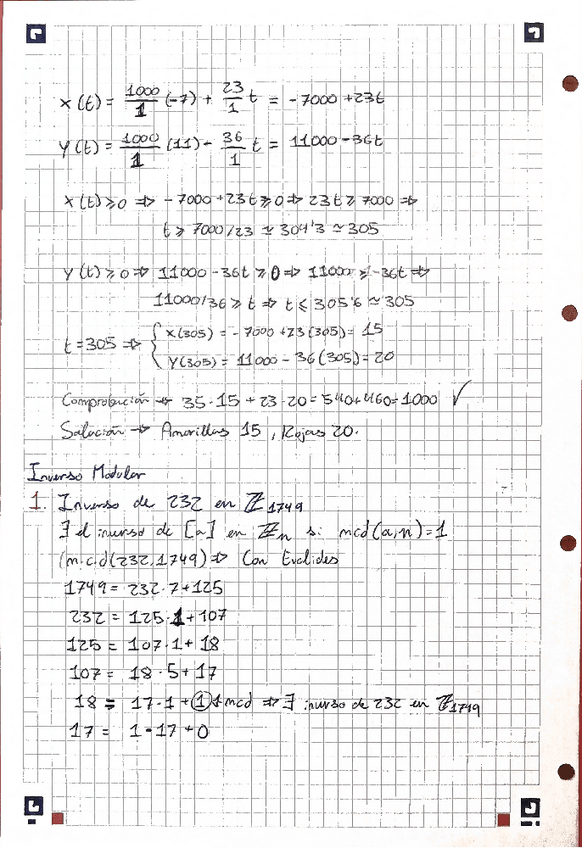 x(t) = 1000/1 (-7) + 23/1 t = -7000 + 23t
y(t) = 1000/1 (11) - 36/1 t = 11000 - 36t
x(t) ≥ 0 ⇒ -7000 + 23t ≥ 0 ⇒ 23t ≥ 7000 ⇒
t ≥ 7000/23 ≃ 304'3 ≃ 305
y(t) ≥ 0 ⇒ 11000 - 36t ≥ 0 ⇒ 11000 ≥ -36t ⇒
11000/36 ≥ t ⇒ t ≤ 305'6 ≃ 305
t = 305 ⇒ { x(305) = -7000 + 23(305) = 15
y(305) = 11000 - 36(305) = 20
Comprobación → 35·15 + 23·20 = 540 + 460 = 1000 ✓
Solución → Amarillas 15, Rojas 20.
Inverso Modular
1. Inverso de 232 en ℤ1749
∃ el inverso de [a] en ℤn si mcd(a,n) = 1
(m.c.d(232,1749) ⇒ Con Euclides
1749 = 232·7 + 125
232 = 125·1 + 107
125 = 107·1 + 18
107 = 18·5 + 17
18 = 17·1 + 1 mcd ⇒ ∃ inverso de 232 en ℤ1749
17 = 1·17 + 0